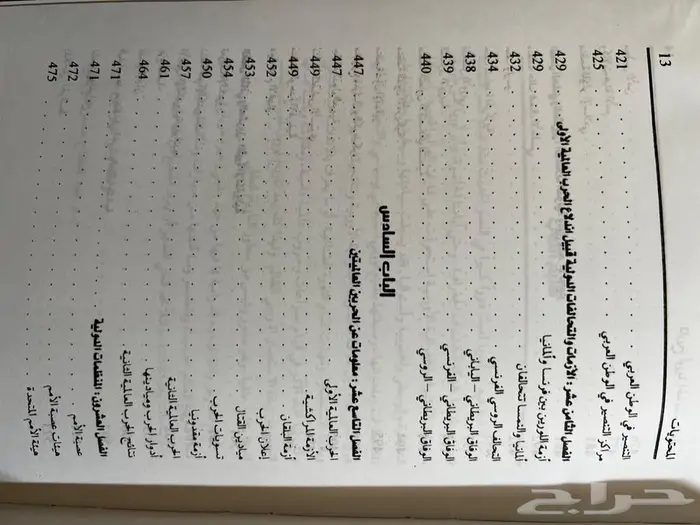 المحتويات 13
التبشير في الوطن العربي 421
مراكز التبشير في الوطن العربي 425
الفصل الثامن عشر: الأزمات والتحالفات الدولية قبيل اندلاع الحرب العالمية الأولى 429
أزمة اللورين بين فرنسا وألمانيا 429
ألمانيا والنمسا تتحالفان 432
التحالف الروسي الفرنسي 434
الوفاق البريطاني - الياباني 438
الوفاق البريطاني - الفرنسي 439
الوفاق البريطاني - الروسي 440
الباب السادس
الفصل التاسع عشر: معلومات عن الحربين العالميتين 447
الحرب العالمية الأولى 447
الأزمة المراكشية 449
أزمة البلقان 449
إعلان الحرب 452
ميادين القتال 453
تسويات الحرب 454
أزمة مقدونيا 450
الحرب العالمية الثانية 457
أدوار الحرب وميادينها 461
نتائج الحرب العالمية الثانية 464
الفصل العشرون: المنظمات الدولية 471
عصبة الأمم 471
هيئات عصبة الأمم 472
هيئة الأمم المتحدة 475
حراج